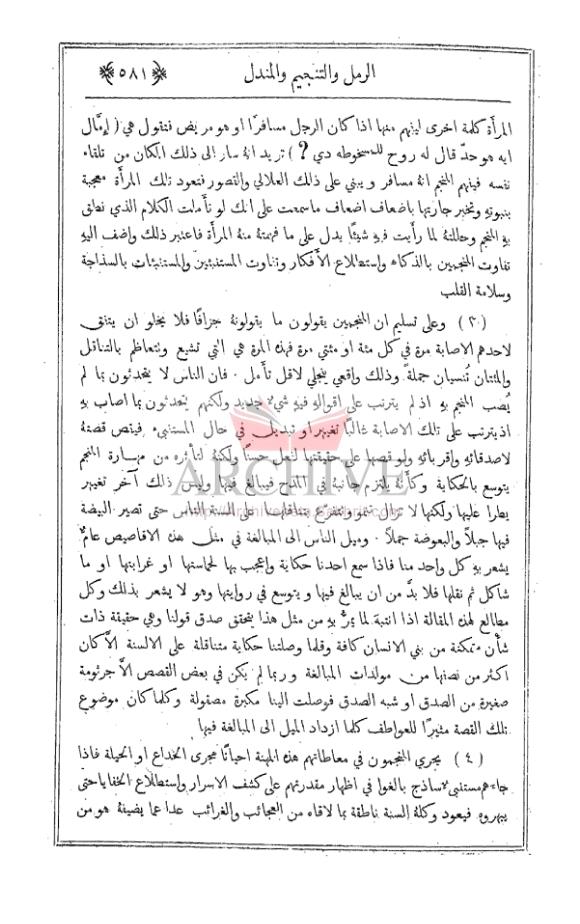 الرمل والتنجيم والمندل ﴿٥٨١﴾
المرأة كلمة اخرى ليفهم منها اذا كان الرجل مسافرًا او هو مريض فتقول هي (إمَّال
ايه هو حدّ قال له روح للمسخوطه دي ?) تريد انهُ سار الى ذلك المكان من تلقاء
نفسه فيفهم المنجم انهُ مسافر ويبني على ذلك العلالي والقصور فتعود تلك المرأة معجبة
بنبوتهِ وتخبر جارتها باضعاف اضعاف ما سمعت على انك لو تأملت الكلام الذي نطق
بهِ المنجم وحللتهُ لما رأيت فيهِ شيئًا يدل على ما فهمتهُ منهُ المرأة فاعتبر ذلك واضف اليهِ
تفاوت المنجمين بالذكاء واستطلاع الأفكار وتفاوت المستنبئين والمستنبئات بالسذاجة
وسلامة القلب
(٣) وعلى تسليم ان المنجمين يقولون ما يقولونهُ جزافًا فلا يخلو ان يتفق
لاحدهم الاصابة مرة في كل مئة او مئتي مرة فهذه المرة هي التي تشيع وتتعاظم بالتناقل
والمئتان تُنسيان جملةً وذلك واقعي ينجلي لاقل تأمل . فان الناس لا يتحدثون بما لم
يُصب المنجم بهِ اذ لم يترتب على اقوالهِ فيهِ شيء جديد ولكنهم يتحدثون بما اصاب بهِ
اذ يترتب على تلك الاصابة غالبًا تغيير او تبديل في حال المستنبىء فيقص قصتهُ
لاصدقائهِ واقربائهِ ولو قصها على حقيقتها لفعل حسنًا ولكنهُ لتأثره من مهارة المنجم
يتوسع بالحكاية وكأنهُ يلتزم جانبهُ في المدح فيبالغ فيها وليس ذلك آخر تغيير
يطرا عليها ولكنها لا تزال تنمو وتتفرع بتناقلها على السنة الناس حتى تصير البيضة
فيها جبلًا والبعوضة جملًا . وميل الناس الى المبالغة في مثل هذه الاقاصيص عامٌّ
يشعر بهِ كل واحد منا فاذا سمع احدنا حكاية واعجب بها لحماستها او غرابتها او ما
شاكل ثم نقلها فلا بدَّ من ان يبالغ فيها ويتوسع في روايتها وهو لا يشعر بذلك وكل
مطالع لهذه المقالة اذا انتبه لما يمرُّ بهِ من مثل هذا يتحقق صدق قولنا وهي حقيقة ذات
شأن متمكنة من بني الانسان كافة وقلما وصلتنا حكاية متناقلة على الالسنة الَّا كان
اكثر من نصفها من مولدات المبالغة وربما لم يكن في بعض القصص الَّا جرثومة
صغيرة من الصدق او شبه الصدق فوصلت الينا مكبرة مصقولة وكلما كان موضوع
تلك القصة مثيرًا للعواطف كلما ازداد الميل الى المبالغة فيها
(٤) يجري المنجمون في معاطاتهم هذه المهنة احيانًا مجرى الخداع او الحيلة فاذا
جاءهم مستنبىء ساذج بالغوا في اظهار مقدرتهم على كشف الاسرار واستطلاع الخفايا حتى
يبهروه فيعود وكلهُ السنة ناطقة بما لاقاه من العجائب والغرائب عدا عما يضيفهُ هو من
ARCHIVE